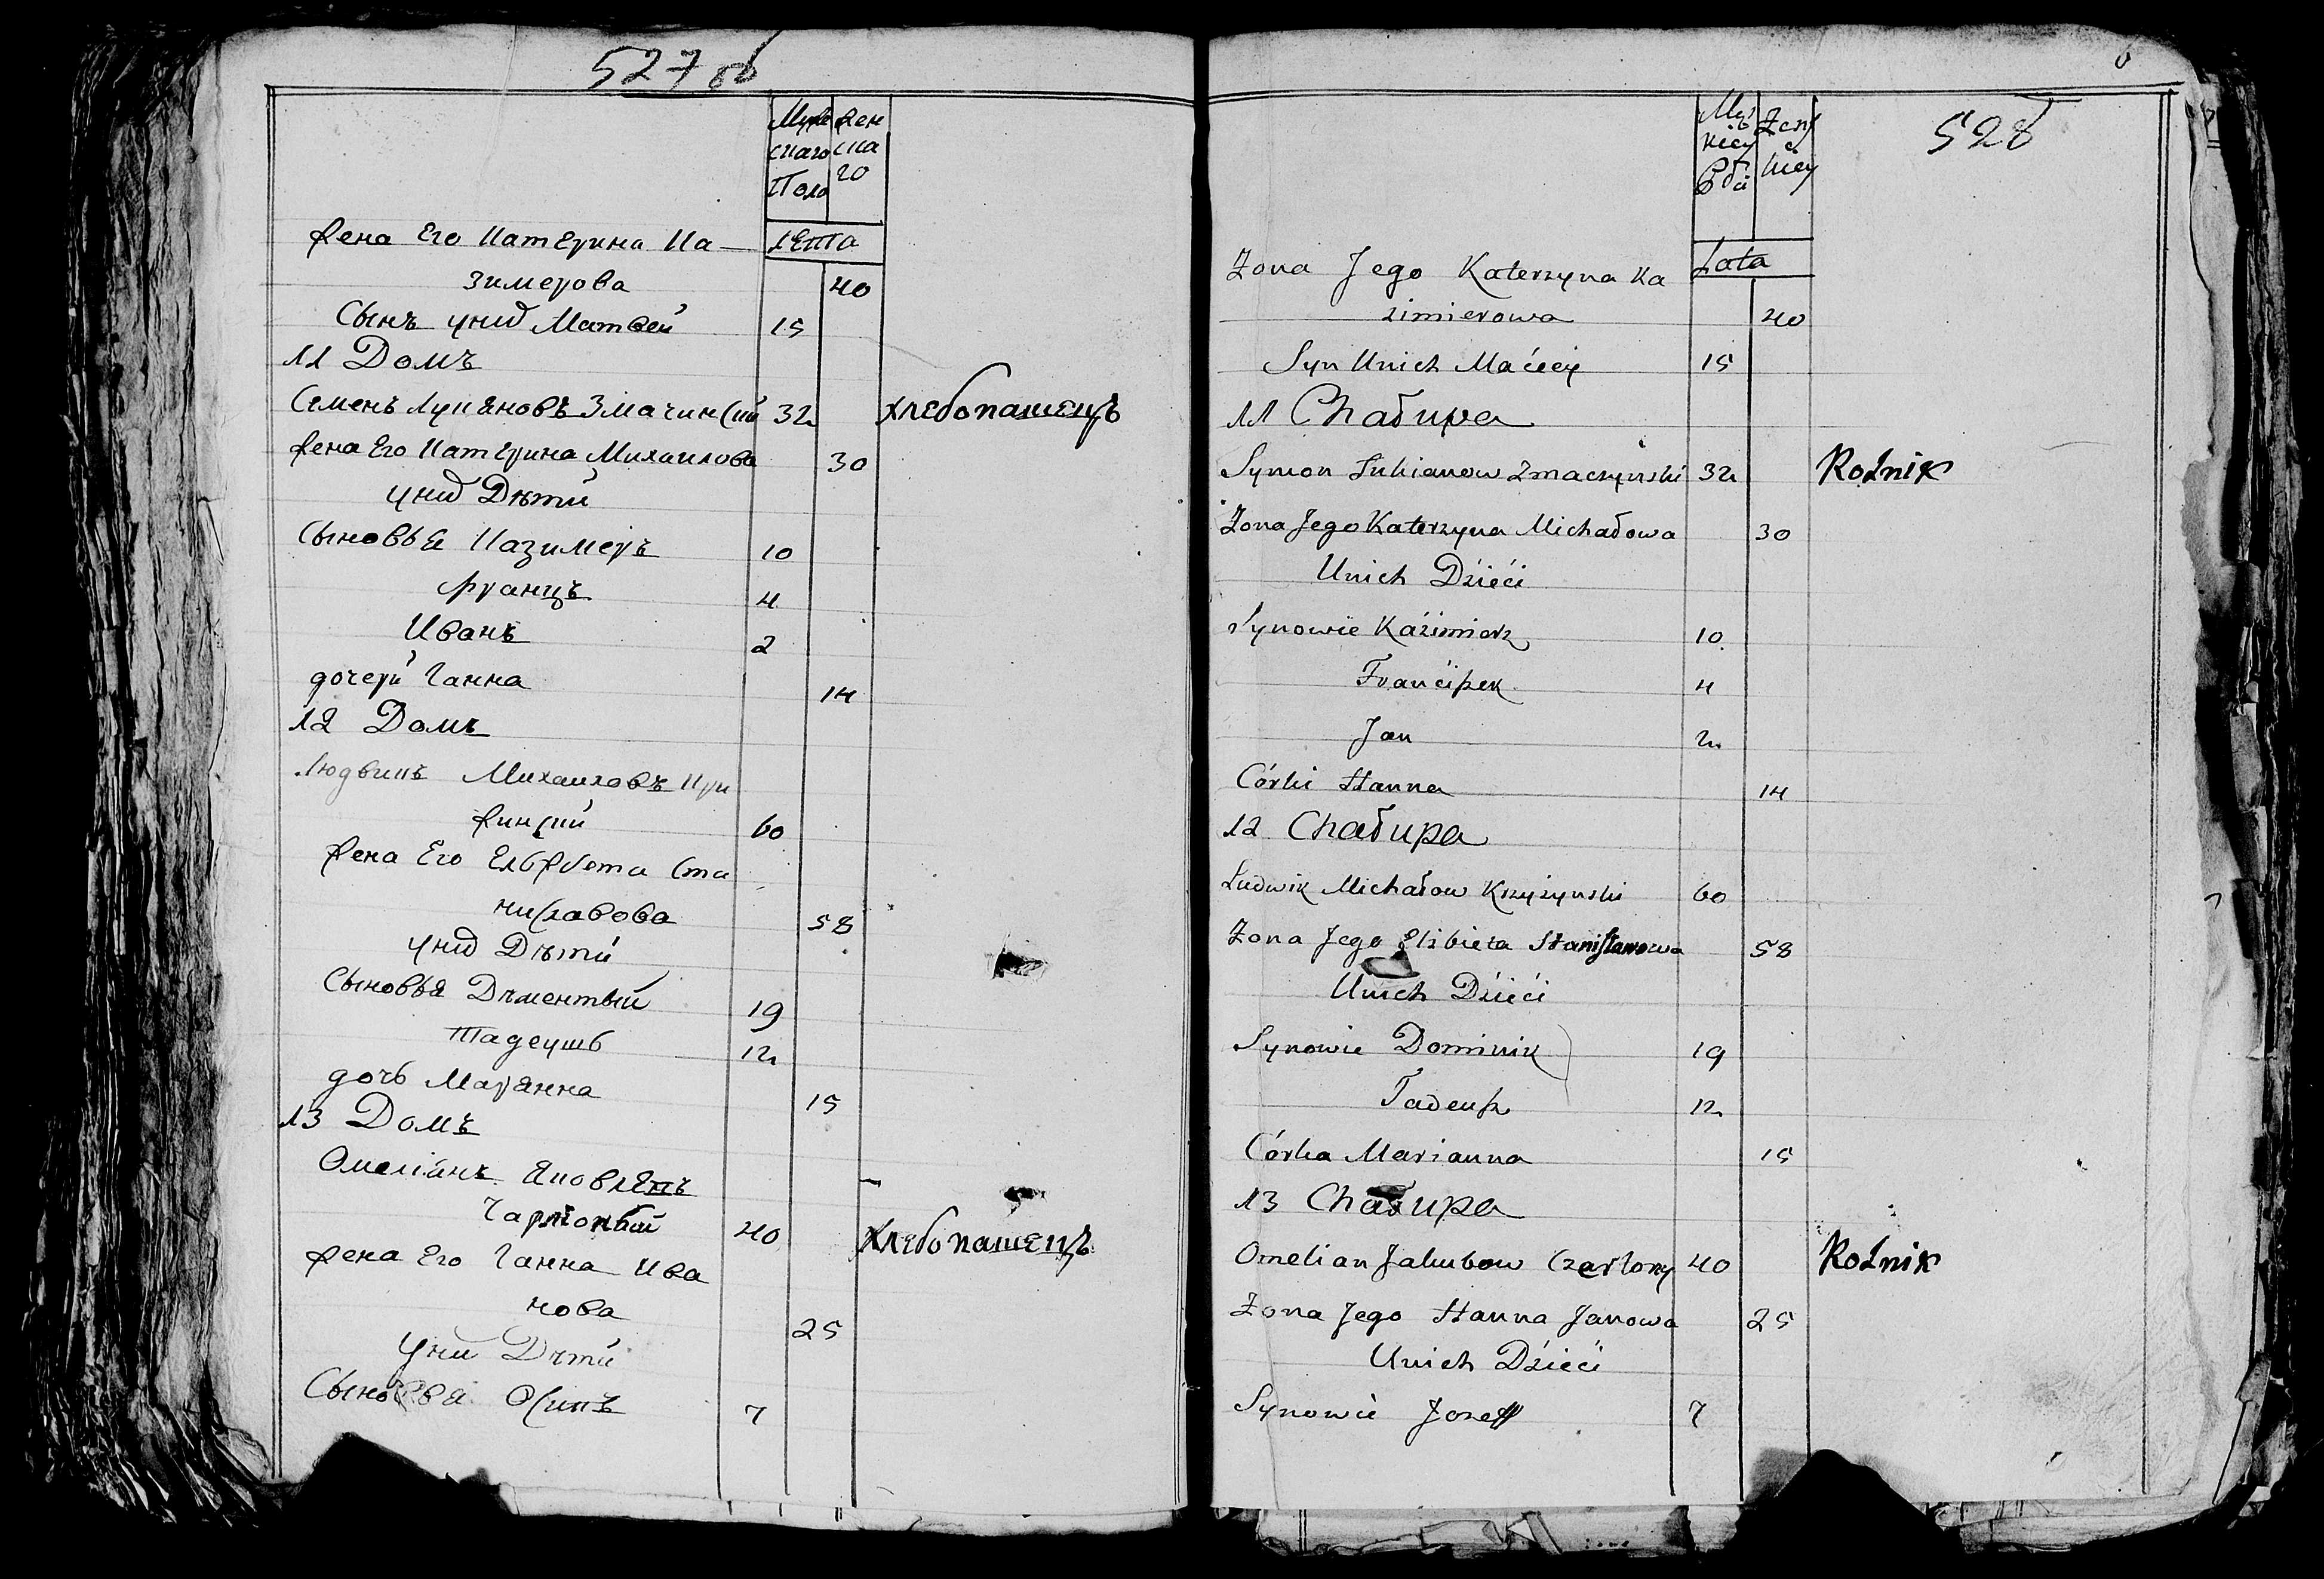 527 об
Муже Жен
скаго ска
Пола го
Лета
Жена Его Катерина Ка
зимерова 40
Сынъ униχ Матвей 15
11 Домъ
Семенъ Лукяновъ Змачинский 32 хлебопашецъ
Жена Его Катерина Михаилова 30
униχ Дѣти
Сыновья Казимеръ 10
Францъ 4
Иванъ 2
дочери Ганна 14
12 Домъ
Людвикъ Михаиловъ Кри
жинский 60
Жена Его Ельжбета Ста
ниславова 58
униχ Дѣти
Сыновья Дѣментый 19
Тадеушь 12
дочь Марянна 15
13 Домъ
Омелiянъ Яковлевъ
Чарлоный 40 Хлебопашецъ
Жена Его Ганна Ива
нова 25
Униχ Дѣти
Сыновья Осипъ 7
6
528
Męz Zens
kiey kiey
Płci
Lata
Zona Jego Katerzyna Ka
zimierowa 40
Syn Unich Maciey 15
11 Chałupa
Symon Lukianow Zmaczynski 32 Rolnik
Zona Jego Katerzyna Michałowa 30
Unich Dzieci
Synowie Kazimierz 10
Franciszek 4
Jan 2
Córki Hanna 14
12 Chałupa
Ludwik Michałow Krzyzynski 60
Zona Jego Elzbieta Stanisławowa 58
Unich Dzieci
Synowie Dominik 19
Tadeusz 12
Córka Marianna 15
13 Chałupa
Omelian Jakubow Czarlony 40 Rolnik
Zona Jego Hanna Janowa 25
Unich Dzieci
Synowie Jozeff 7